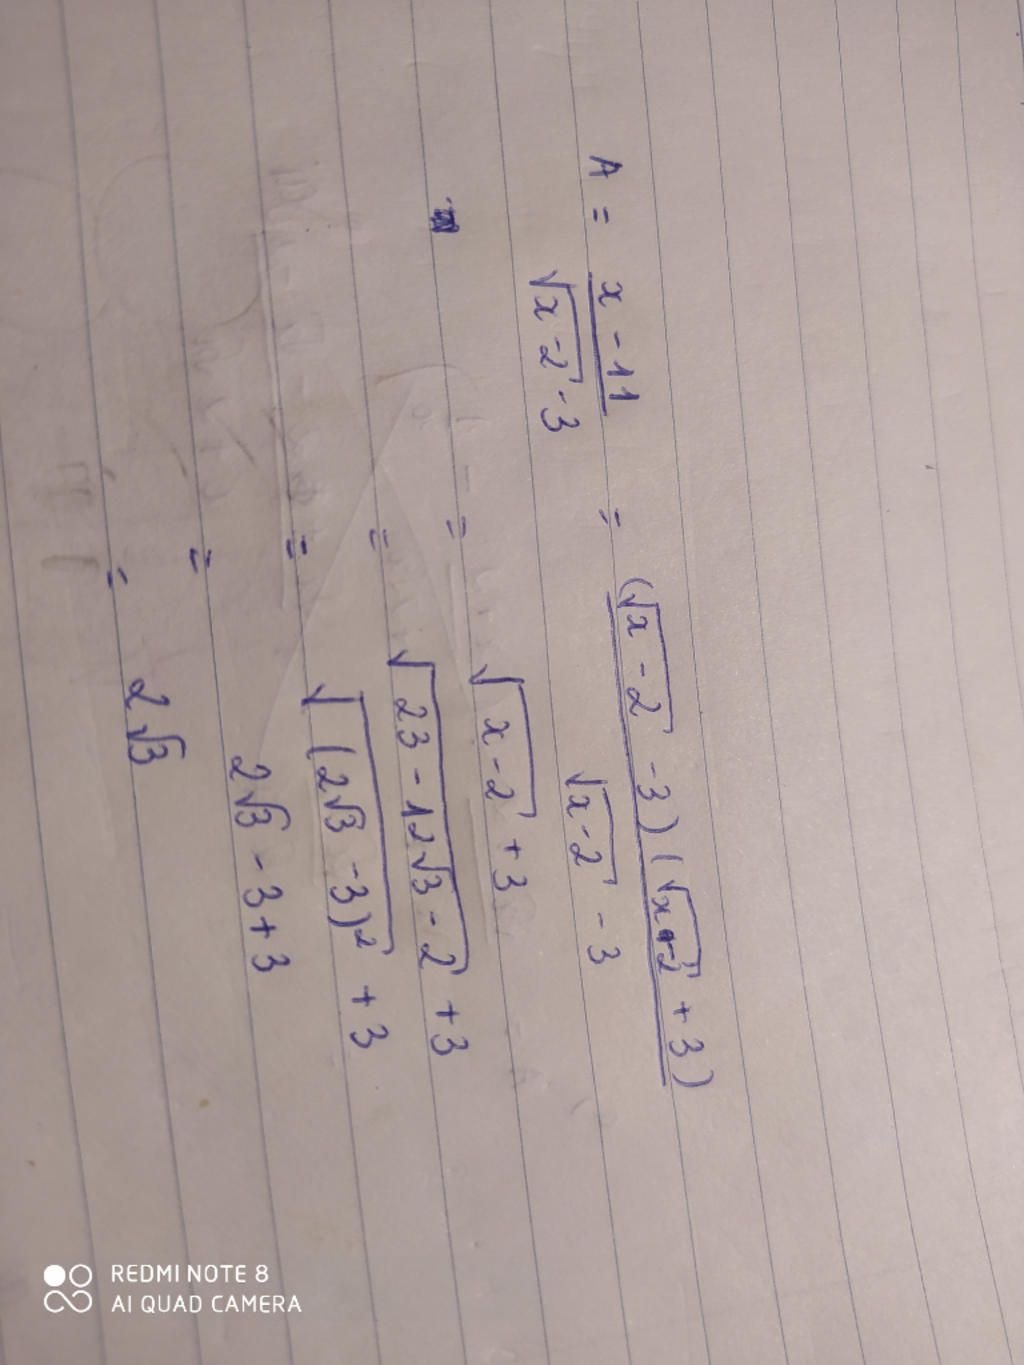 A = x - 11 / √(x - 2) - 3 = (√(x - 2) - 3)(√(x - 2) + 3) / √(x - 2) - 3
= √(x - 2) + 3
= √(23 - 12√3 - 2) + 3
= √((2√3 - 3)²) + 3
= 2√3 - 3 + 3
= 2√3
REDMI NOTE 8
AI QUAD CAMERA